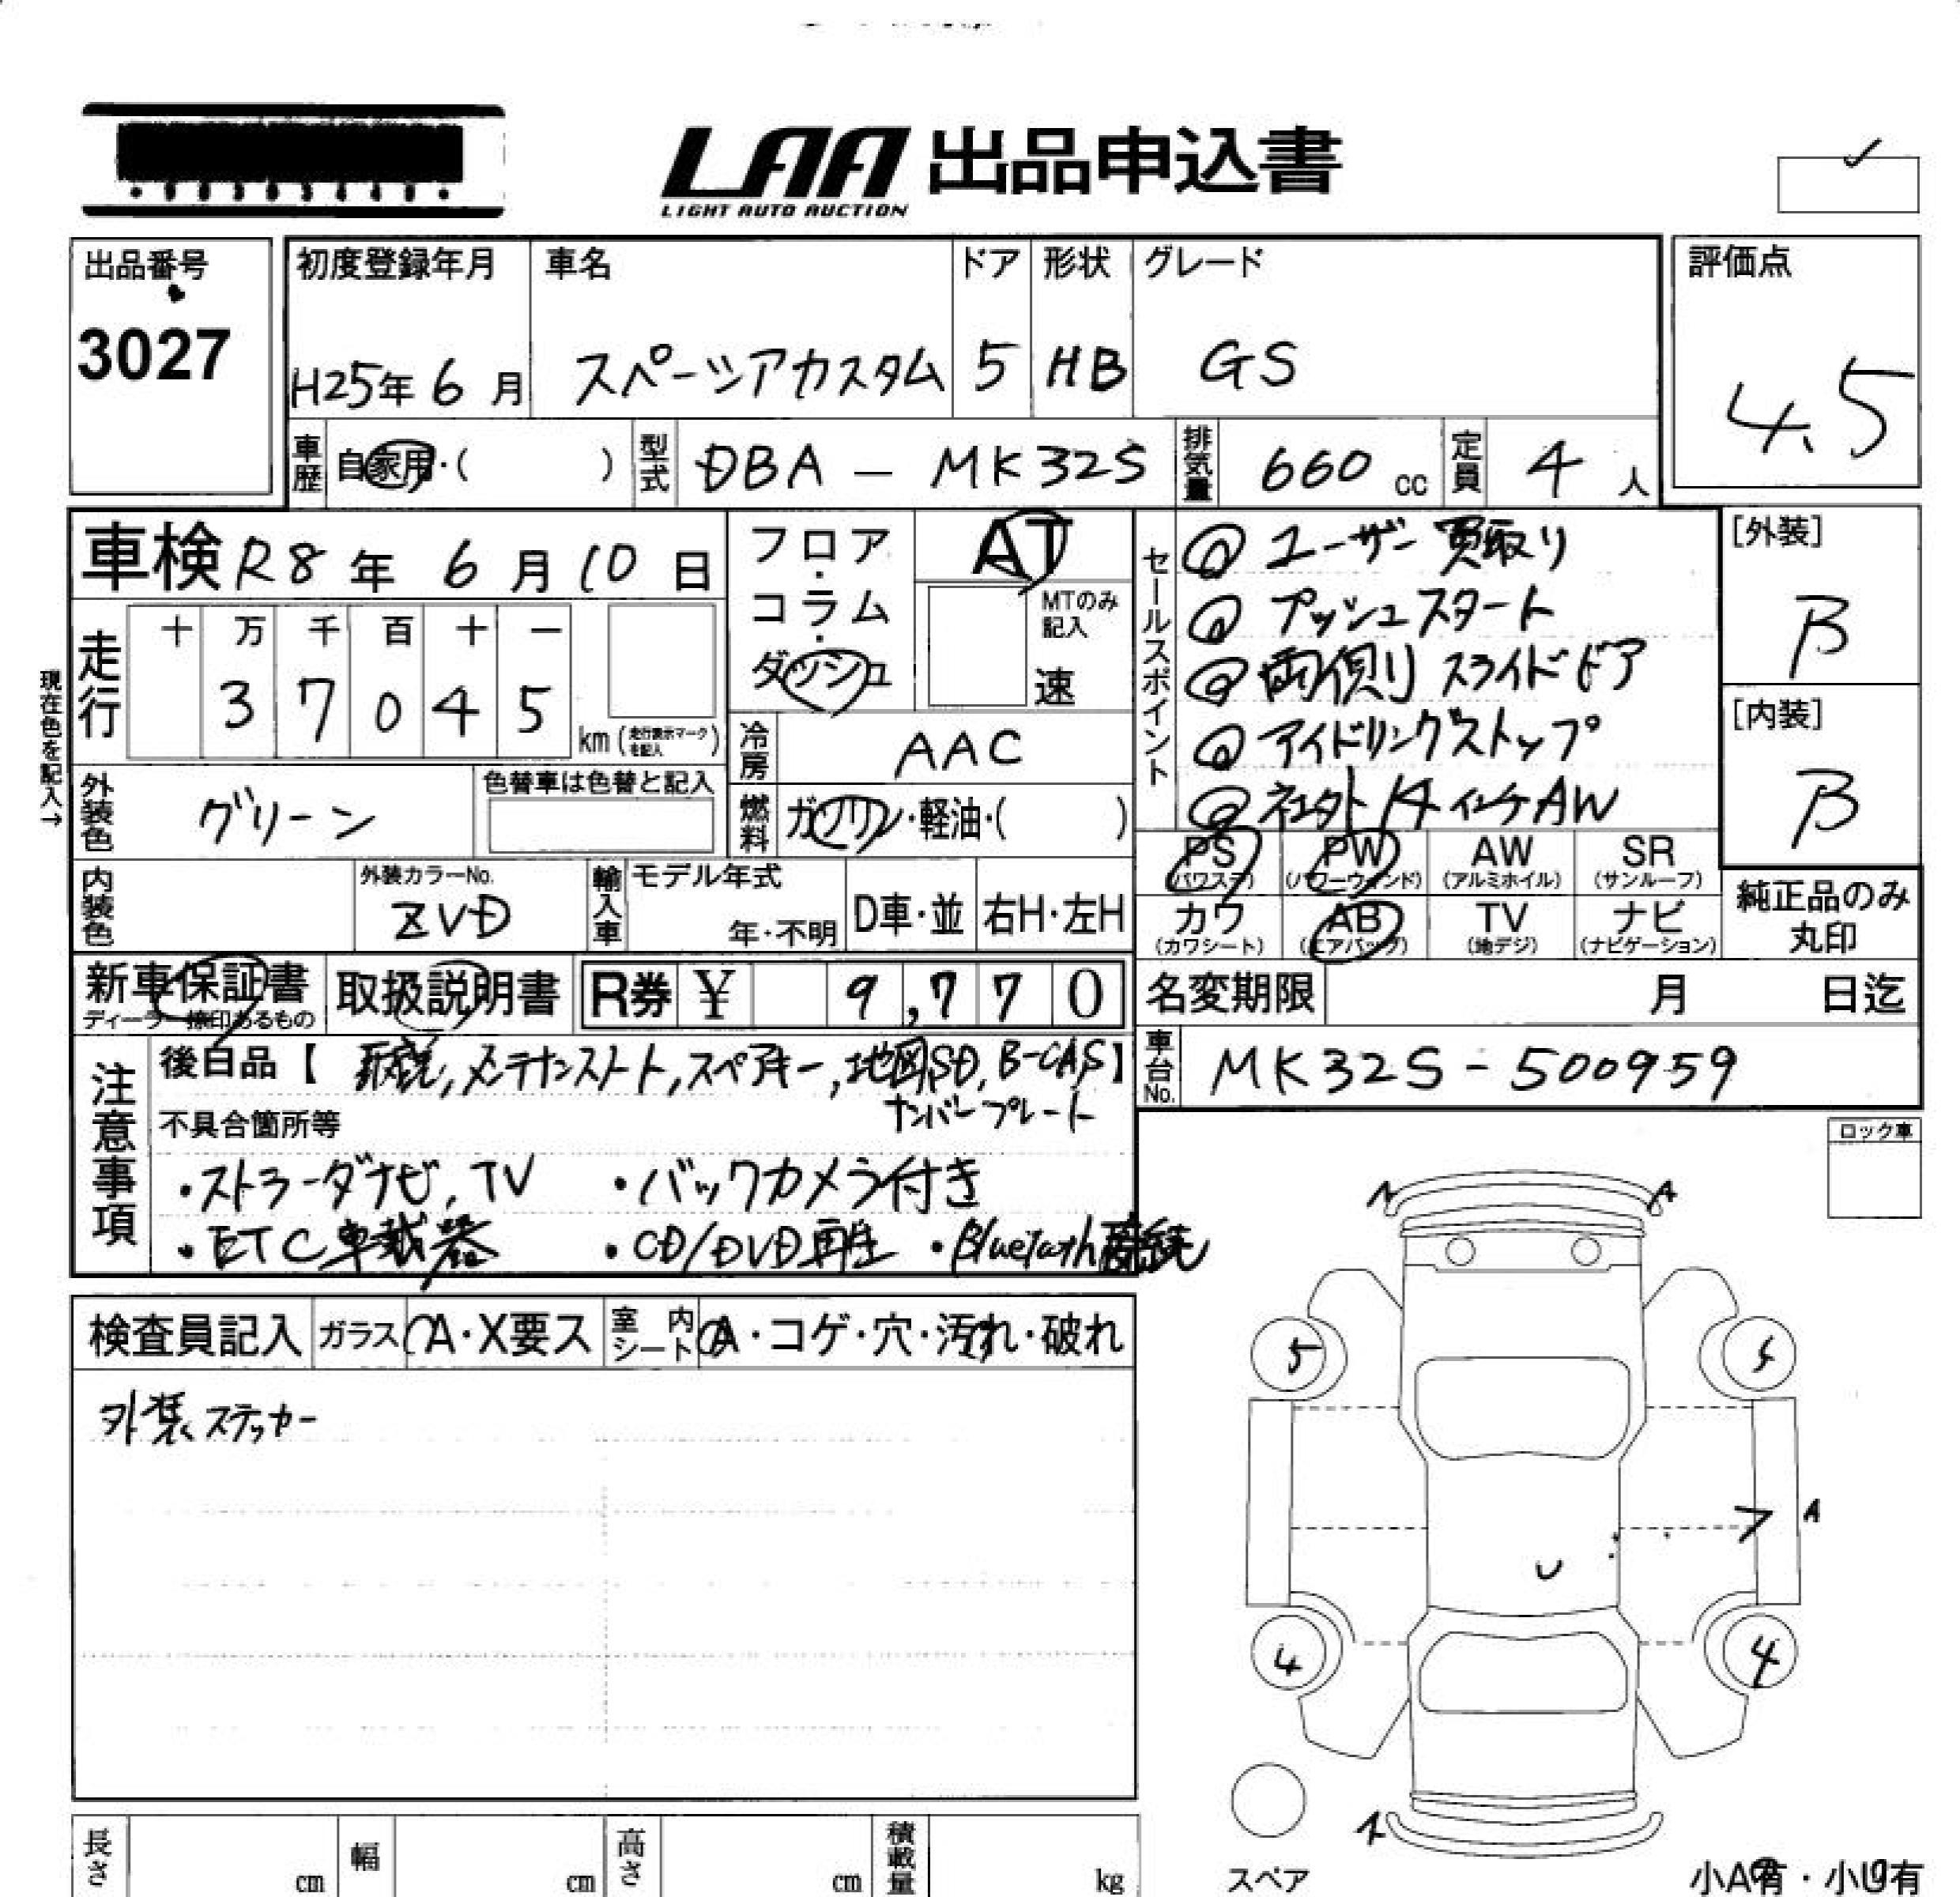 LAA 出品申込書
LIGHT AUTO AUCTION
出品番号
3027
初度登録年月
H25年 6 月
車名
スペーシアカスタム
ドア
5
形状
HB
グレード
GS
評価点
4.5
車歴 自家用・( )
型式 DBA - MK32S
排気量 660 cc
定員 4 人
車検 R8 年 6 月 10 日
フロア・コラム・ダッシュ
AT
MTのみ記入
速
セールスポイント
@ ユーザー買取り
@ プッシュスタート
@ 両側スライドドア
@ アイドリングストップ
@ 社外14インチAW
[外装]
B
[内装]
B
現在色を記入→
走行
十 万 千 百 十 一
3 7 0 4 5
km (走行表示マークを記入)
冷房 AAC
外装色 グリーン
色替車は色替と記入
燃料 ガソリン・軽油・( )
内装色
外装カラーNo.
ZVD
輸入車
モデル年式
年・不明
D車・並
右H・左H
PS (パワステ)
PW (パワーウィンド)
AW (アルミホイル)
SR (サンルーフ)
カワ (カワシート)
AB (エアバッグ)
TV (地デジ)
ナビ (ナビゲーション)
純正品のみ丸印
新車保証書
ディーラー捺印あるもの
取扱説明書
R券 ¥ 9,770
名変期限 月 日迄
注意事項
後日品【 取説, メンテナンスノート, スペアキー, 地図SD, B-CAS】
ナンバープレート
不具合箇所等
・ストラーダナビ, TV ・バックカメラ付き
・ETC車載器 ・CD/DVD再生 ・Bluetooth接続
車台No. MK32S - 500959
ロック車
検査員記入
ガラス A・X要ス
室内シート A・コゲ・穴・汚れ・破れ
外装ステッカー
A
5
5
A
U
4
4
スペア
小A有・小U有
長さ cm
幅 cm
高さ cm
積載量 kg